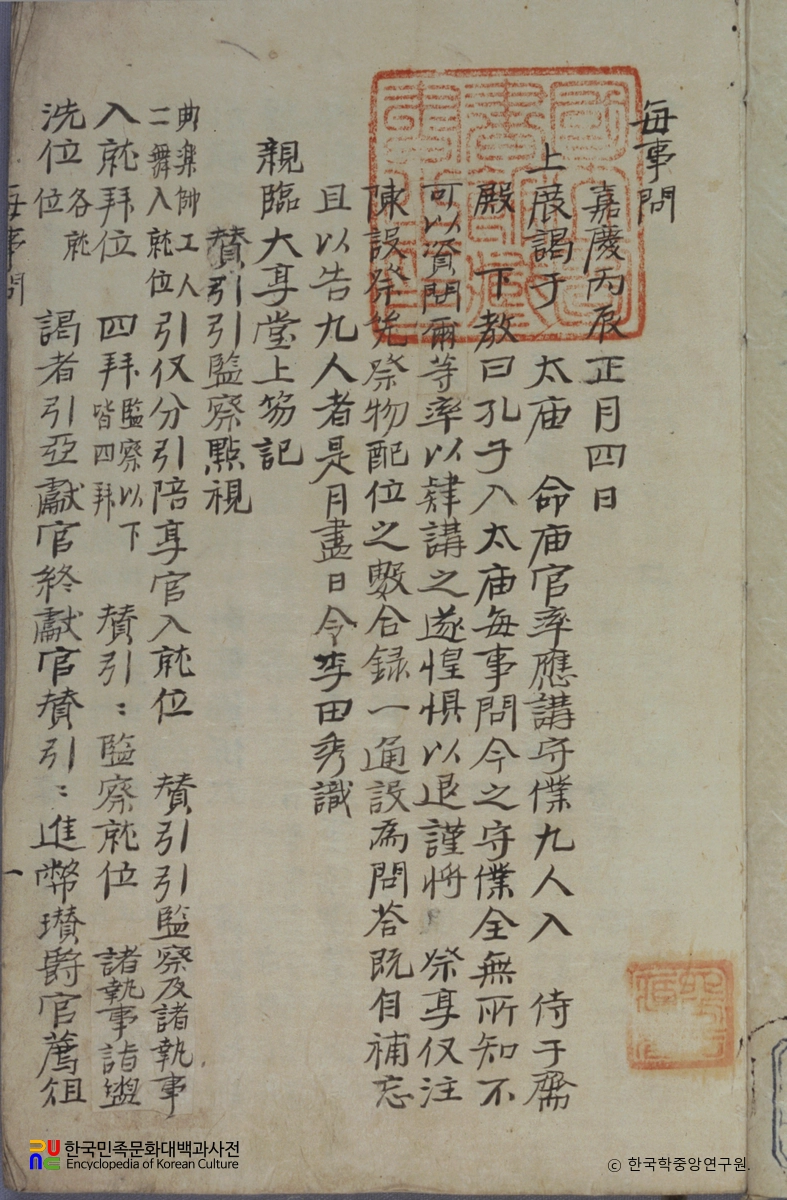 每事問
嘉慶丙辰正月四日
上展謁于 太庙 命庙官率應講守僕九人入 侍于齋
殿 下教曰孔子入太庙每事問今之守僕全無所知不
可以資問爾等率以肄講之遂惶惧以退謹將 祭享仪注
陳設祭先祭物配位之數合録一通設爲問荅既自補忘
且以告九人者是月盡日令李田秀識
親臨大享堂上笏記
賛引引監察點視
典楽帥工人二舞入就位引仪分引陪享官入就位 賛引引監察及諸執事
入就拜位 四拜監察以下皆四拜 賛引引監察就位 諸執事詣盥
洗位各就位 謁者引亞獻官終獻官賛引引進幣瓚爵官薦俎
每事問
一
한국민족문화대백과사전
Encyclopedia of Korean Culture
© 한국학중앙연구원.